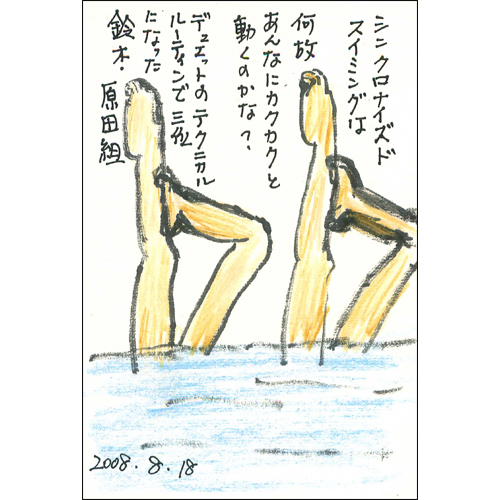 シンクロナイズド
スイミングは
何故
あんなにカクカクと
動くのかな?、
デュエットのテクニカル
ルーティンで三位
になった
鈴木・原田組
2008.8.18